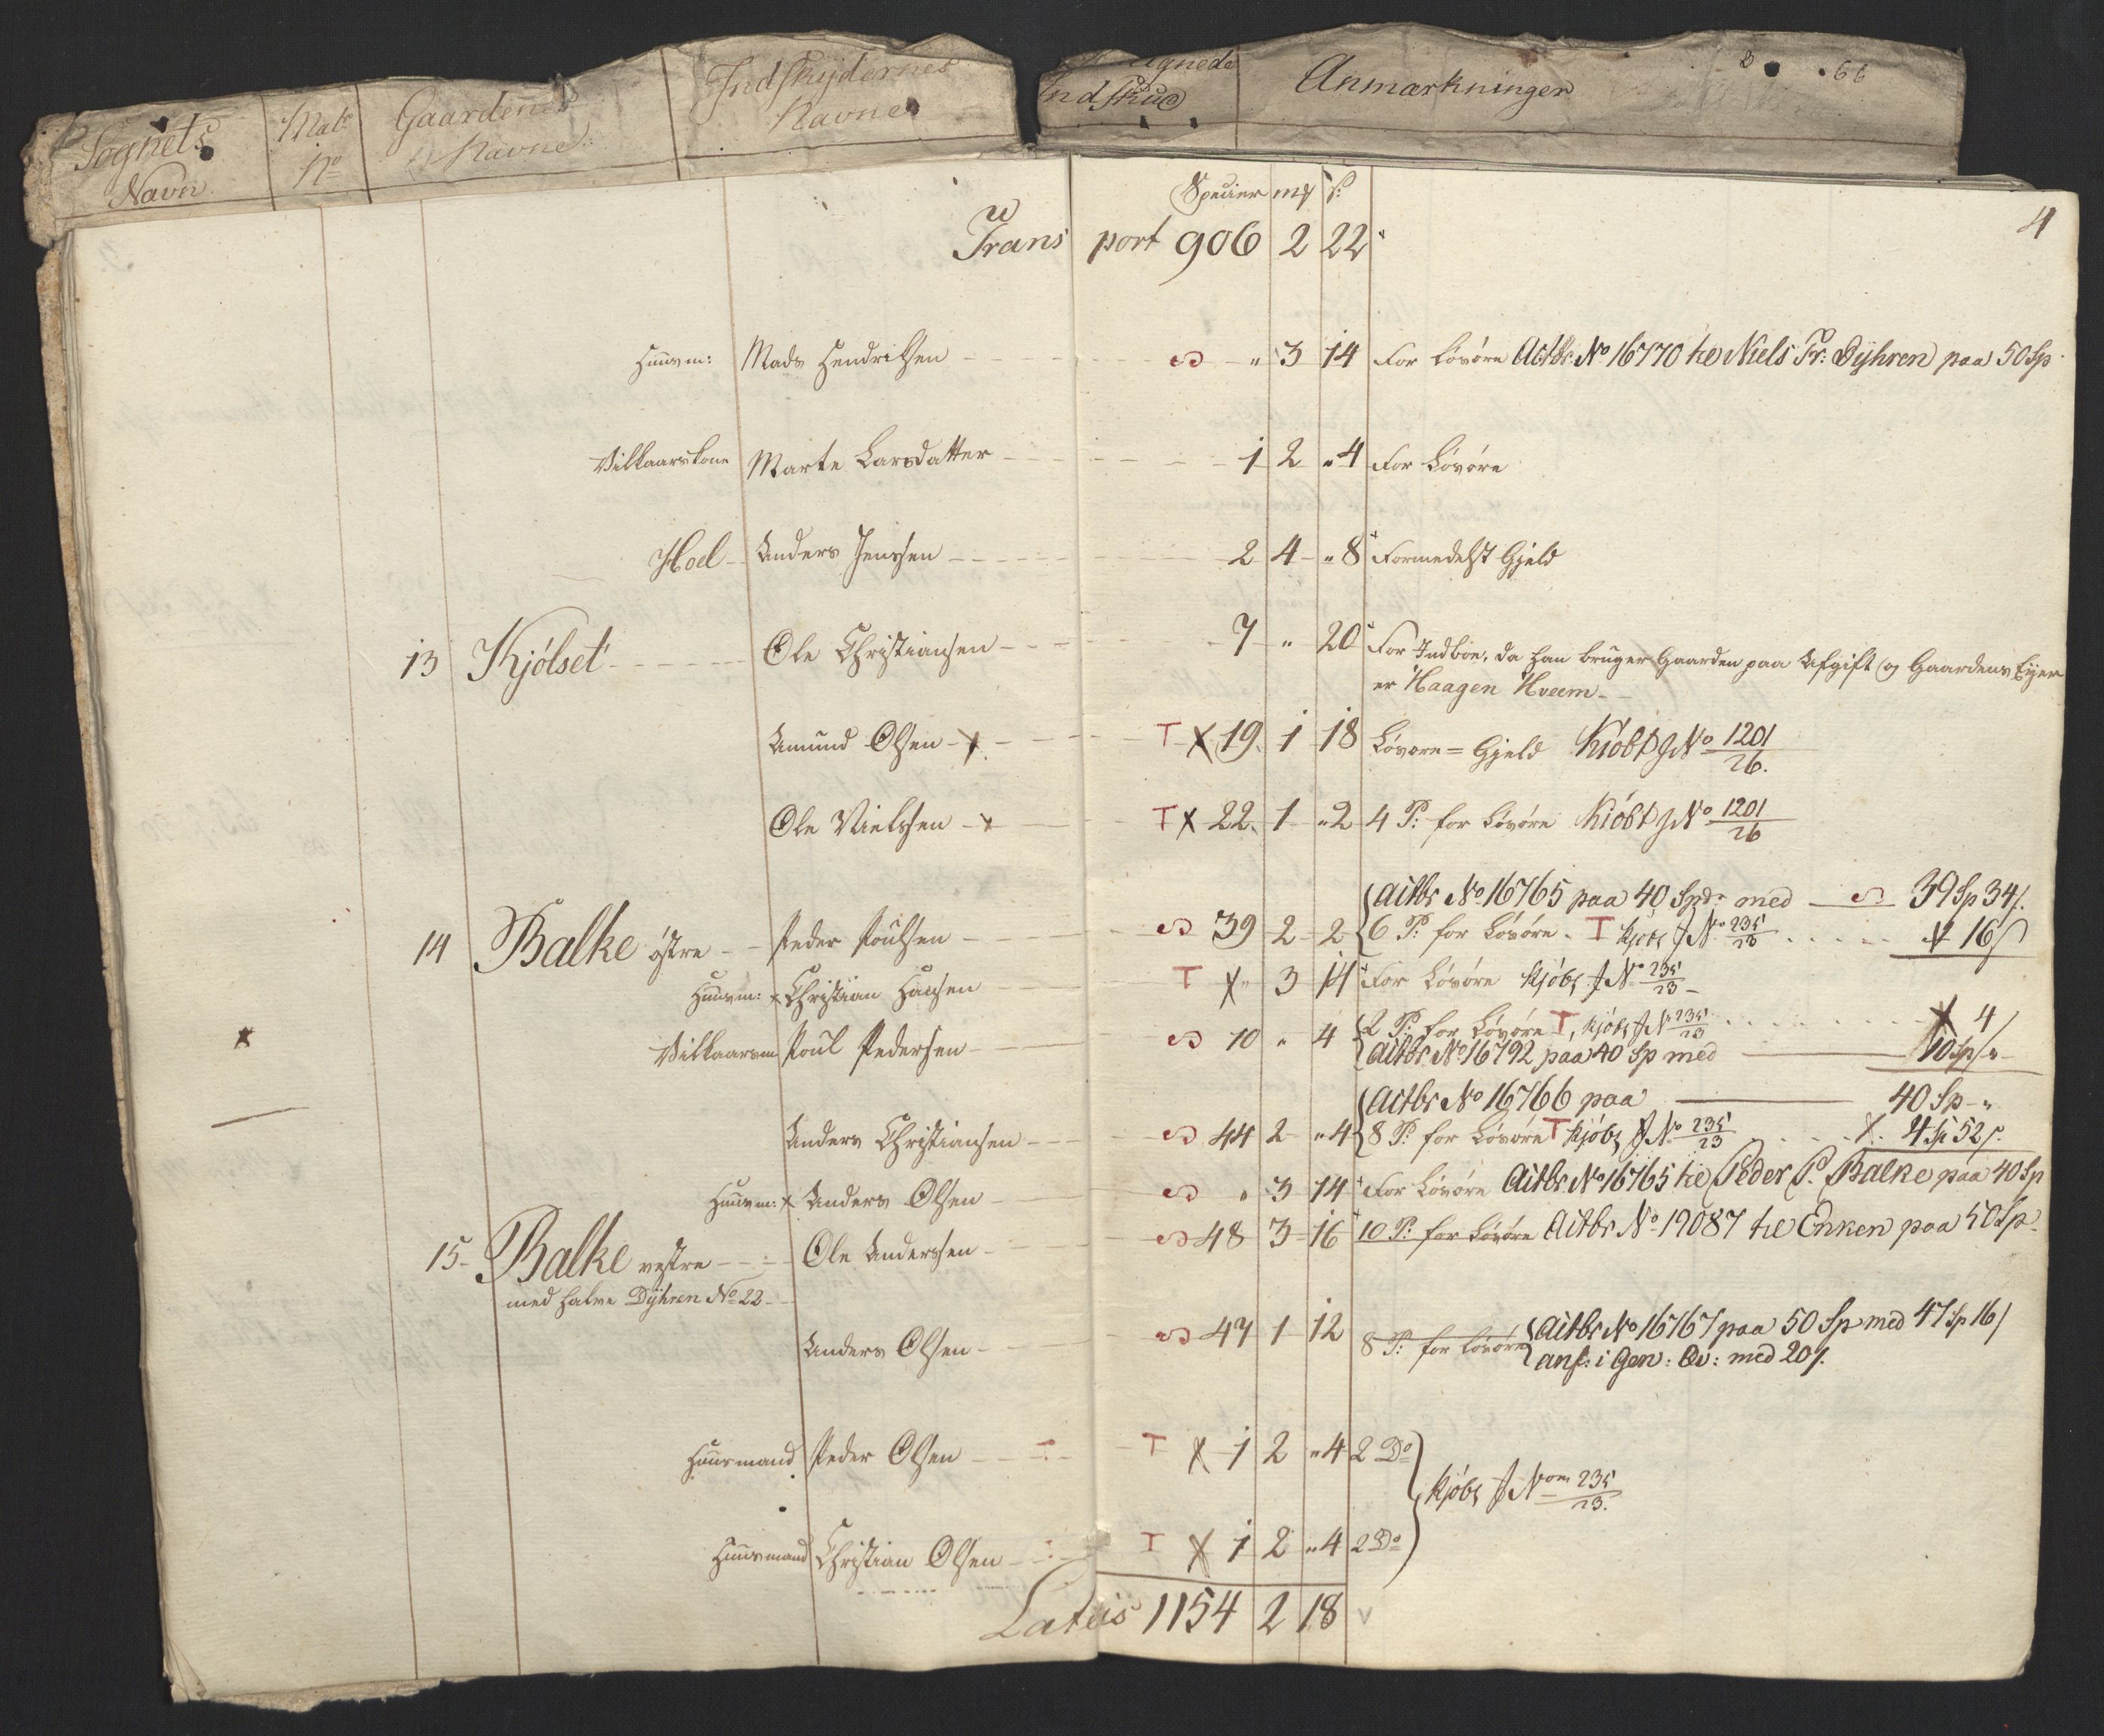 Sognets Navn
Matr No
Gaardenes Navne
Indskydernes Navne
Indskud
Anmærkninger
66
4
Specier mk s:
Trans port 906 2 22
Huusm: Mads Hendriksen " 3 14 For Løsøre Actbr. No 16770 til Niels Pr: Dÿhren paa 50 Sp
Vilkaarskone Marte Larsdatter 1 2 "4 For Løsøre
Hoel Anders Jenssen 2 4 "8 Formedelst Gjeld
13 Kjølset Ole Christiansen 7 " 20 For Indboe, da han bruger Gaarden paa Afgift og Gaardens Eyer
er Haagen Hveem
Amund Olsen T X 19 1 18 Løsøre = Gjeld Kiøbt J No 1201/26.
Ole Nielssen T X 22 1 "2 4 P: for Løsøre Kiøbt J No 1201/26
Actbr No 16765 paa 40 Spd. med 39 Sp 34 s.
14 Balke østre Peder Poulsen 39 2 2 6 P: for Løsøre. T kjøbt J No 235/23 16 s
Huusm: x Christian Hansen T X " 3 14 For Løsøre kjøbt J No 235/23
2 P: for Løsøre T, kjøbt J No 235/23 X 4
X Vilkaarsm Poul Pedersen 10 " 4 Actbr No 16792 paa 40 Sp med 10 Sp "
Actbr No 16766 paa 40 Sp "
Anders Christiansen 44 2 "4 8 P: for Løsøre T kjøbt J No 235/23 X 4 Sp 52 s.
Huusm: x Anders Olsen " 3 14 For Løsøre Actbr No 16765 til Peder P. Balke paa 40 Sp
15 Balke vestre Ole Anderssen 48 3 16 10 P: for Løsøre Actbr No 19087 til Enken paa 50 Sp
med halve Dÿhren No 22
Anders Olsen 47 1 12 8 P: for Løsøre Actbr No 16767 paa 50 Sp med 47 Sp 16 s
ans: i Gen: Qv: med 20 s.
Huusmand Peder Olsen T X 1 2 "4 2 Do
kjøbt J Nom 235/23.
Huusmand Christian Olsen T X 1 2 "4 2 Do
Latus 1154 2 18